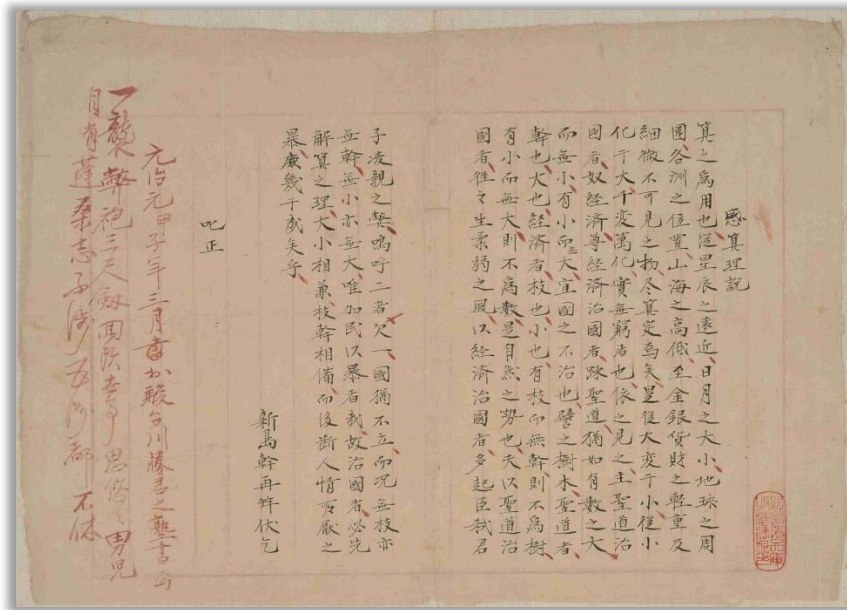 感算理説
算之為用也従星辰之遠近日月之大小地球之周
囲各洲之位置山海之高低至金銀貨財之軽重及
細微不可見之物尽算定焉矣是従大変于小従小
化于大千変万化実無窮者也依之見之主聖道治
国者奴経済専経済治国者疎聖道猶如有数之大
而無小有小而無大宜国之不治也譬之樹木聖道者
幹也大也経済者枝也小也有枝而無幹則不為樹
有小而無大則不為数是自然之勢也夫以聖道治
国者往々生柔弱之風以経済治国者多起臣弑君
子凌親之弊嗚呼二者欠一国猶不立而况無枝亦
無幹無小亦無大唯加民以暴者哉故治国者必先
解算之理大小相兼枝幹相備而後断人情
暴庶幾于成矣乎
新島幹再拝伏乞
叱正
元治元甲子年三月書於駿台川勝君之塾
一襲弊袍三尺剣回頭世事思悠々男児
自有蓬桑志不渉五洲都不休